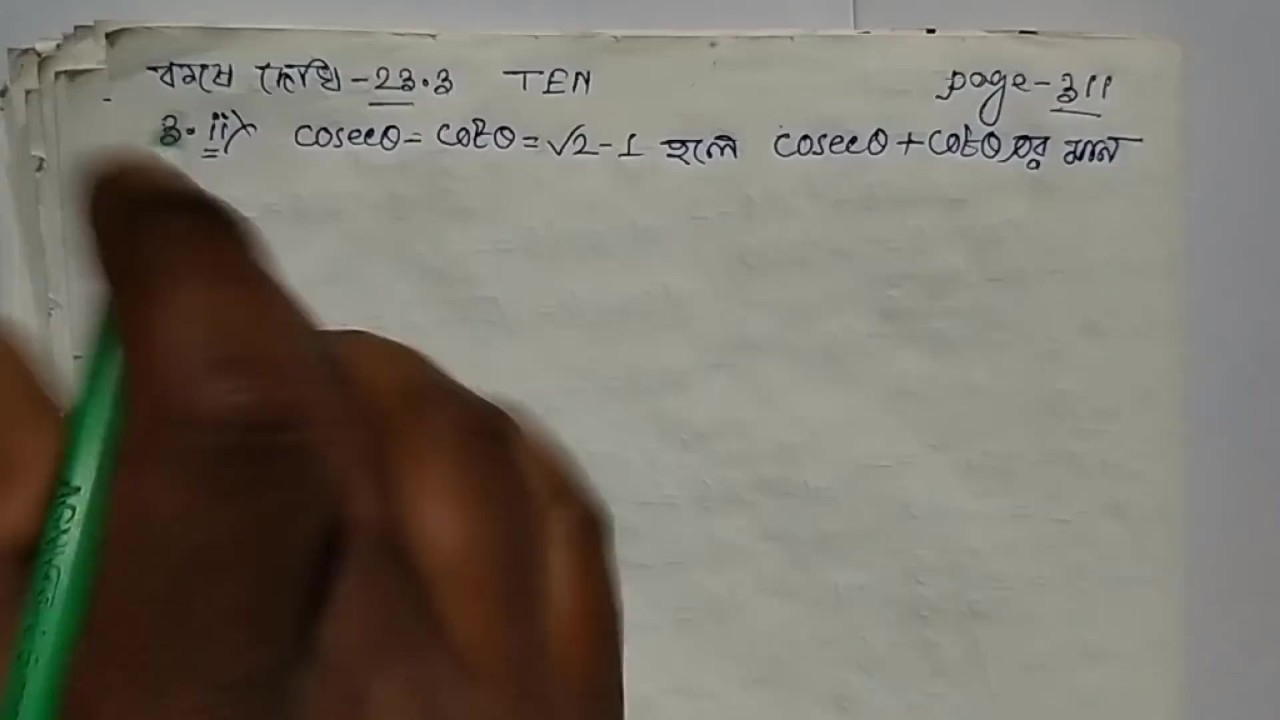 কষে দেখি - 23.3 TEN page - 311
3. ii) cosecθ - cotθ = √2 - 1 হলে cosecθ + cotθ এর মান